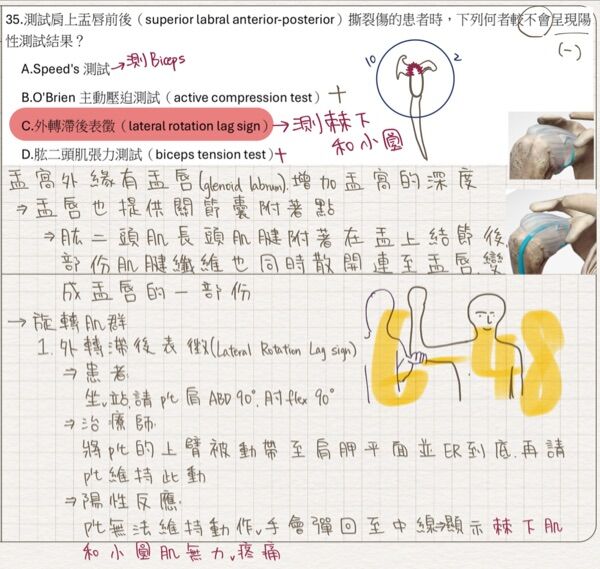 35.測試肩上盂唇前後（superior labral anterior-posterior）撕裂傷的患者時，下列何者較不會呈現陽
性測試結果？
(-)
A.Speed's 測試→測Biceps
10
2
B.O'Brien 主動壓迫測試（active compression test）+
C.外轉滯後表徵（lateral rotation lag sign）→測棘下
和小圓
D.肱二頭肌張力測試（biceps tension test）+
盂窩外緣有盂唇(glenoid labrum),增加盂窩的深度
⇒盂唇也提供關節囊附著點
⇒肱二頭肌長頭肌腱附著在盂上結節後,
部份肌腱纖維也同時散開連至盂唇,變
成盂唇的一部份
→旋轉肌群
1.外轉滯後表徵(Lateral Rotation Lag sign)
⇒患者:
坐、站,請pt肩ABD 90°,肘flex 90°
⇒治療師:
將pt的上臂被動帶至肩胛平面並ER到底,再請
pt維持此動
⇒陽性反應:
pt無法維持動作、手會彈回至中線⇒顯示棘下肌
和小圓肌無力、疼痛
6-48